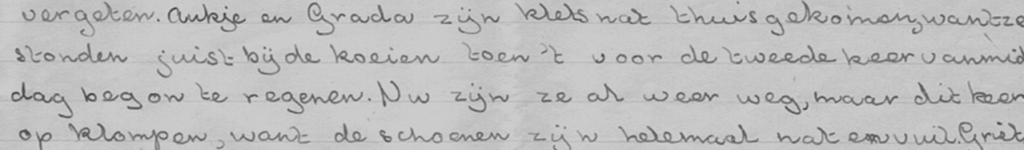 vergeten. Aukje en Grada zijn kletsnat thuisgekomen, want ze
stonden juist bij de koeien toen 't voor de tweede keer vanmid
dag begon te regenen. Nu zijn ze al weer weg, maar dit keer
op klompen, want de schoenen zijn helemaal nat en vuil. Griet